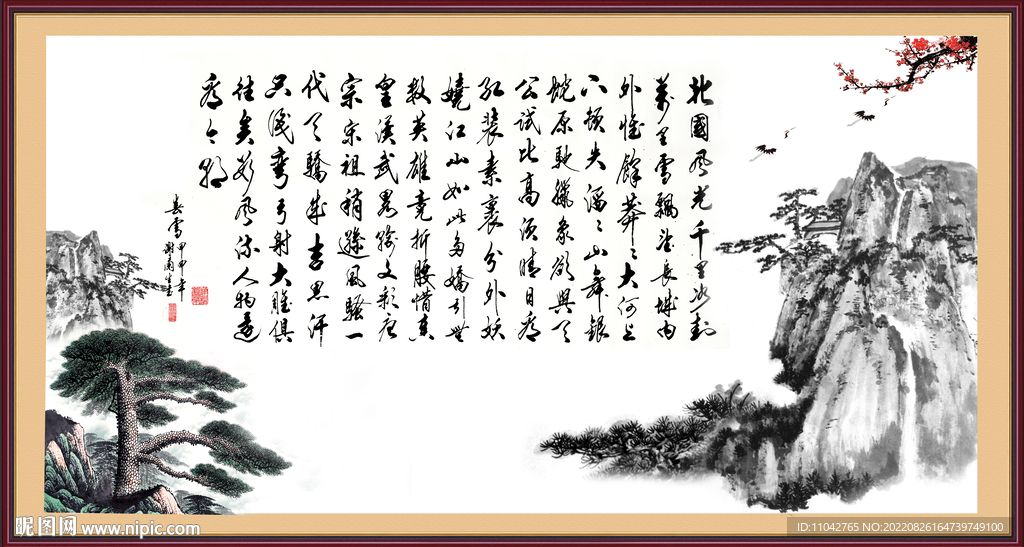 北國風光千里冰封
萬里雪飄望長城内
外惟餘莽〻大河上
下頓失滔〻山舞銀
蛇原馳臘象欲與天
公試比高須晴日看
紅裝素裹分外妖
嬈江山如此多嬌引無
數英雄競折腰惜秦
皇漢武畧輸文彩唐
宗宋祖稍遜風騷一
代天驕成吉思汗
只識彎弓射大雕俱
往矣數風流人物還
看今朝
雪
甲申年
昵图网 www.nipic.com
ID:11042765 NO:20220826164739749100